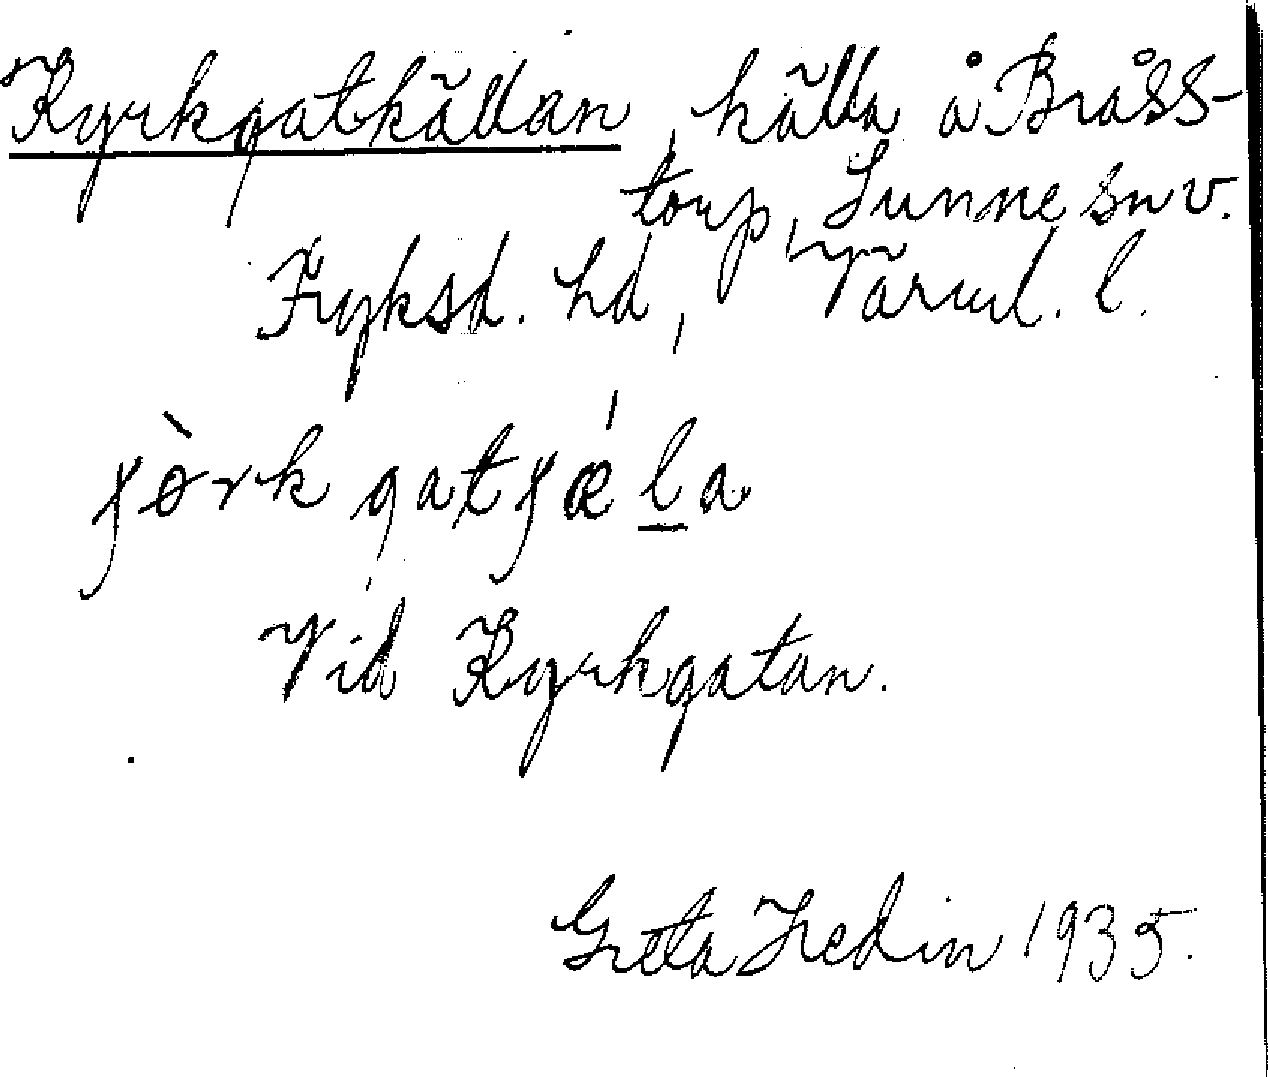 Kyrkgatkällan, källa å Bråss-
torp, Sunne sn v.
Fryksd. hd, Värml. l.
ɟə̀rkgatɟǽla
Vid Kyrkgatan.
Greta Hedin 1935.